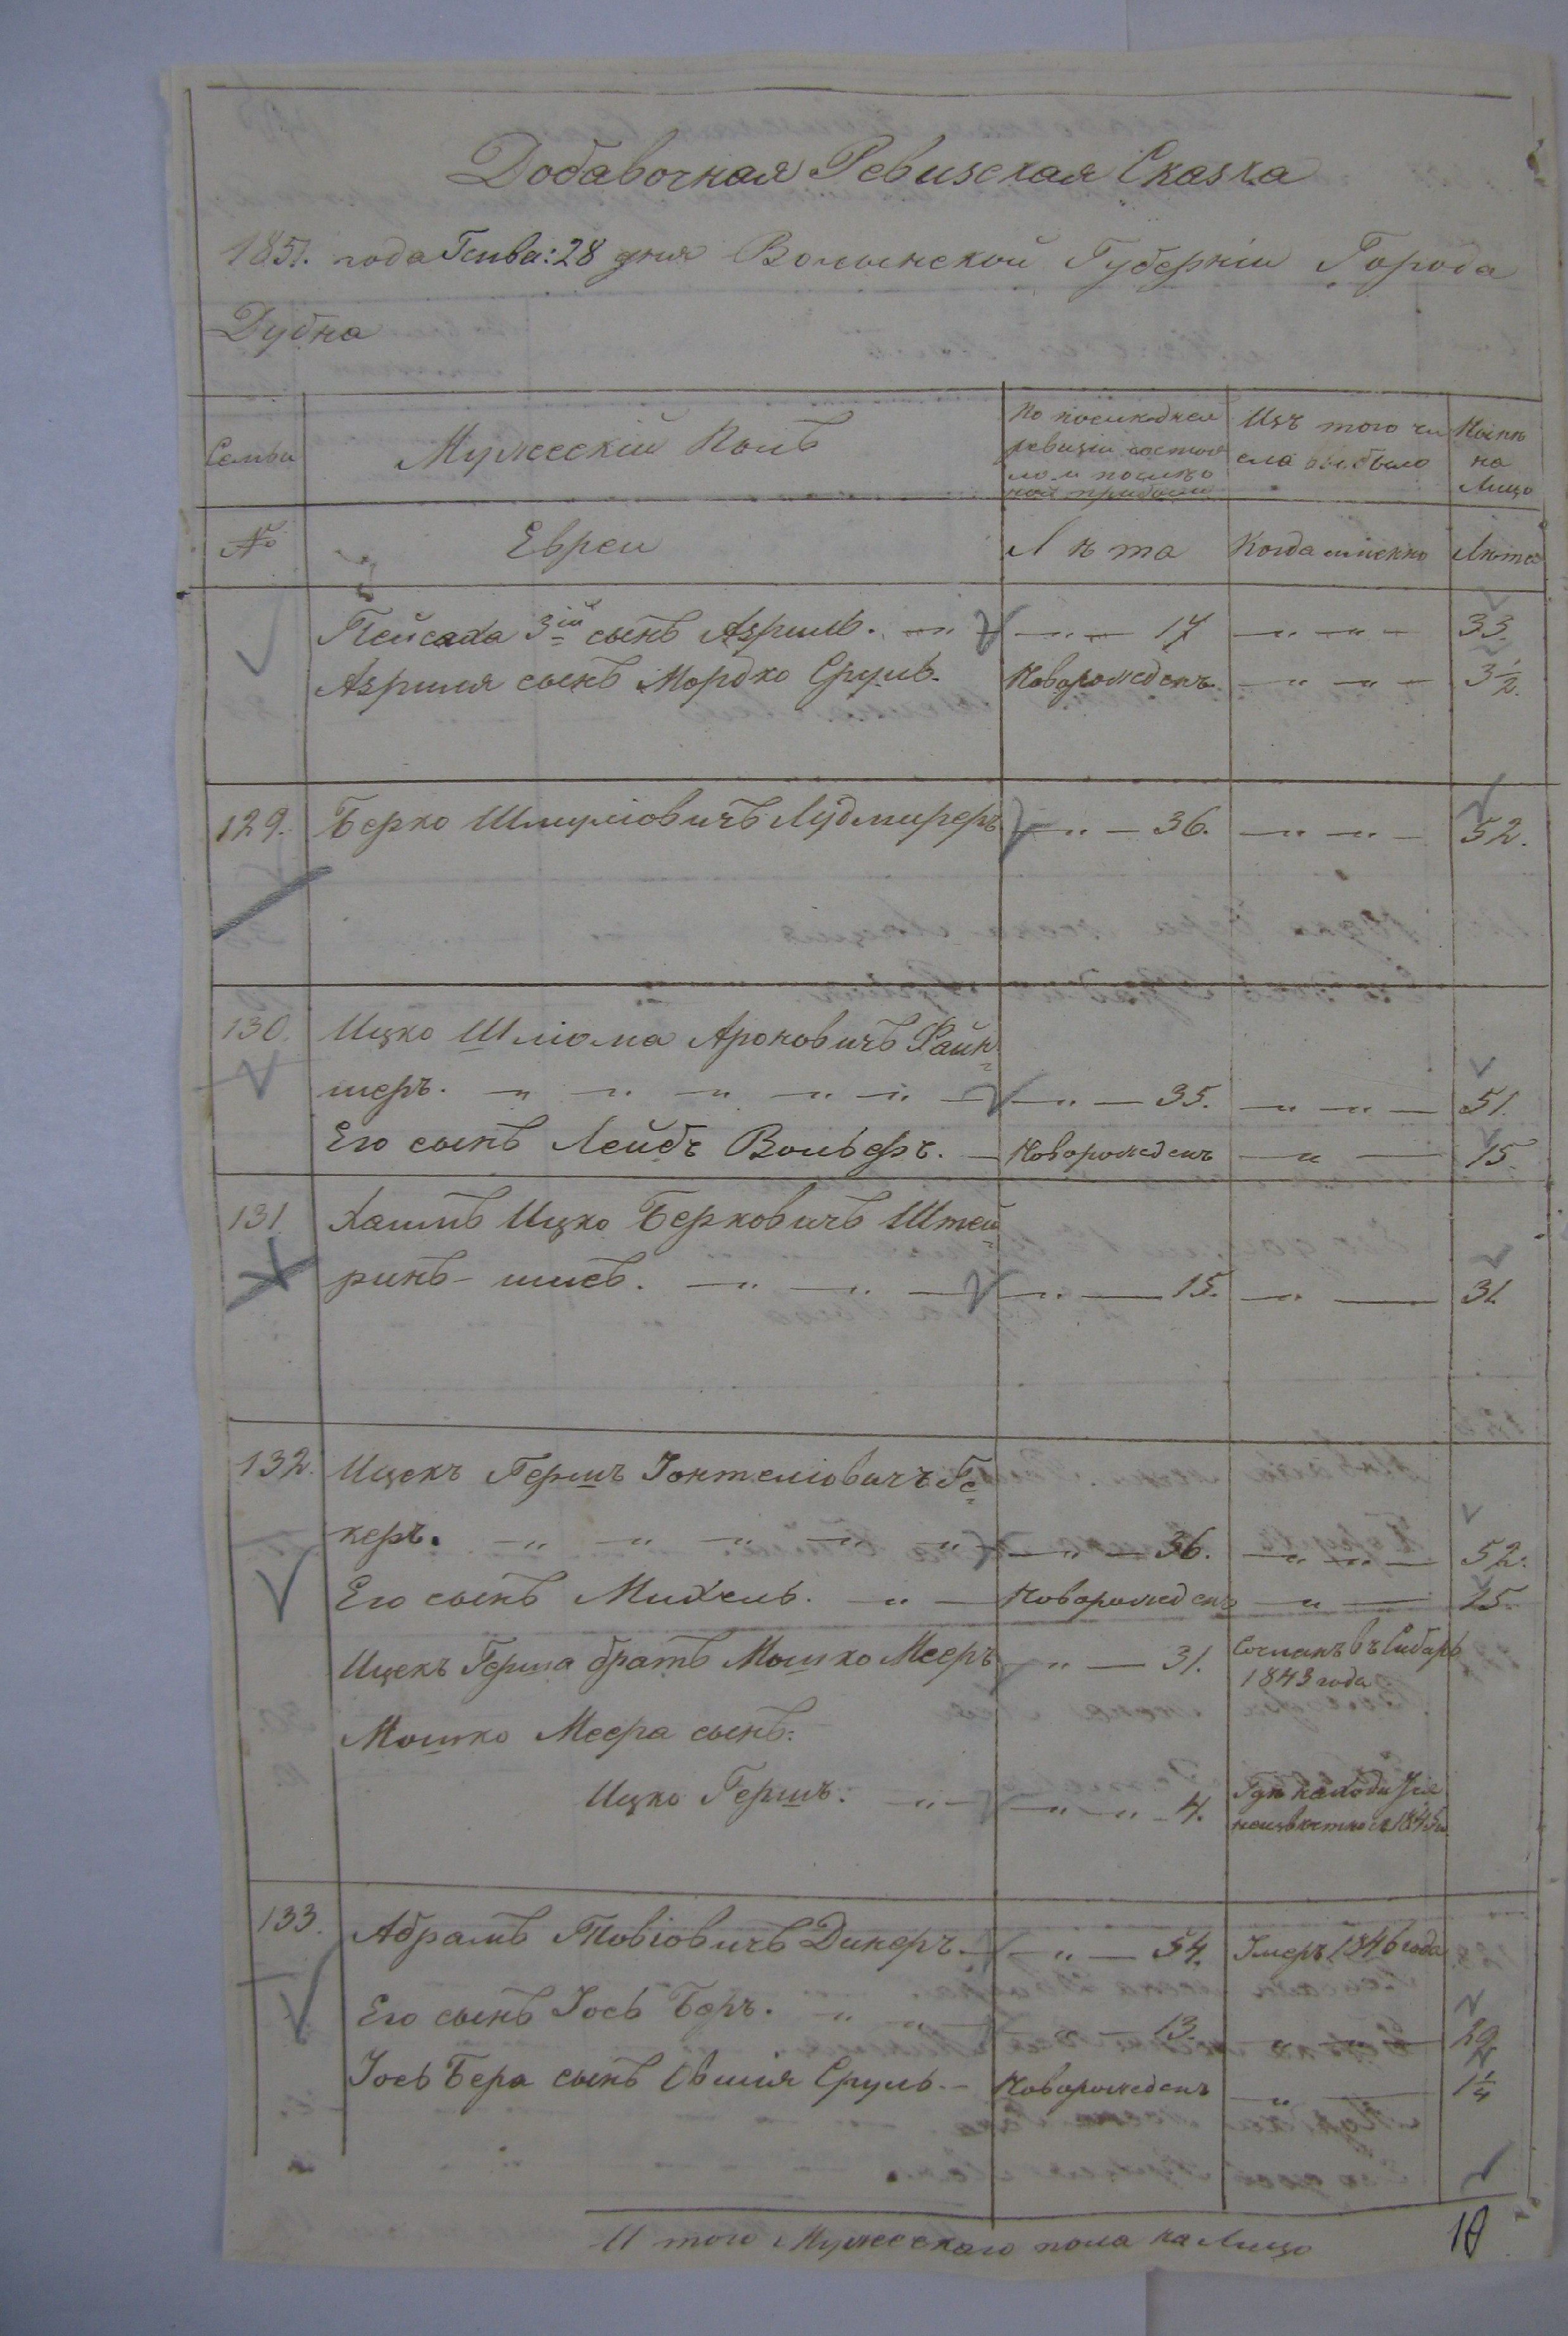 Добавочная Ревизская Сказка
1851. года Генва: 28 дня Волынской Губерніи Города
Дубна
Семьи
Мужескій Полъ
По последней
ревизіи состоя
ло и после
ной прибыло
Изъ того чи
сла выбыло
Ныне
на
Лицо
№
Евреи
Лѣта
Когда именно
Лѣта
Пейсаха 3ій сынъ Азриль. 17 33.
Азриля сынъ Мордко Сруль. Новорожденъ 3½.
129. Берко Шмуліовичъ Лудмиреръ 36. 52.
130. Ицко Шліома Ароновичъ Файн
меръ. 35. 51.
Его сынъ Лейбъ Вольфъ. Новорожденъ 15
131. Хаимъ Ицко Берковичъ Штей
ринъ- 15. 31.
132. Ицекъ Гершъ Іонтеліовичъ Ге
керъ. 36. 52.
Его сынъ Михель. Новорожденъ 15.
Ицекъ Герша братъ Мошко Мееръ 31. Сосланъ въ Сибирь
1843 года
Мошко Меера сынъ:
Ицко Гершъ. 4. Где находится
неизвестно с 1845
133. Абрамъ Товіовичъ Динеръ. 54. Умеръ 1846 года
Его сынъ Іось Беръ. 13. 29
Іось Бера сынъ Овшія Сруль. Новорожденъ 1¼
И того Мужескаго пола на Лицо 10